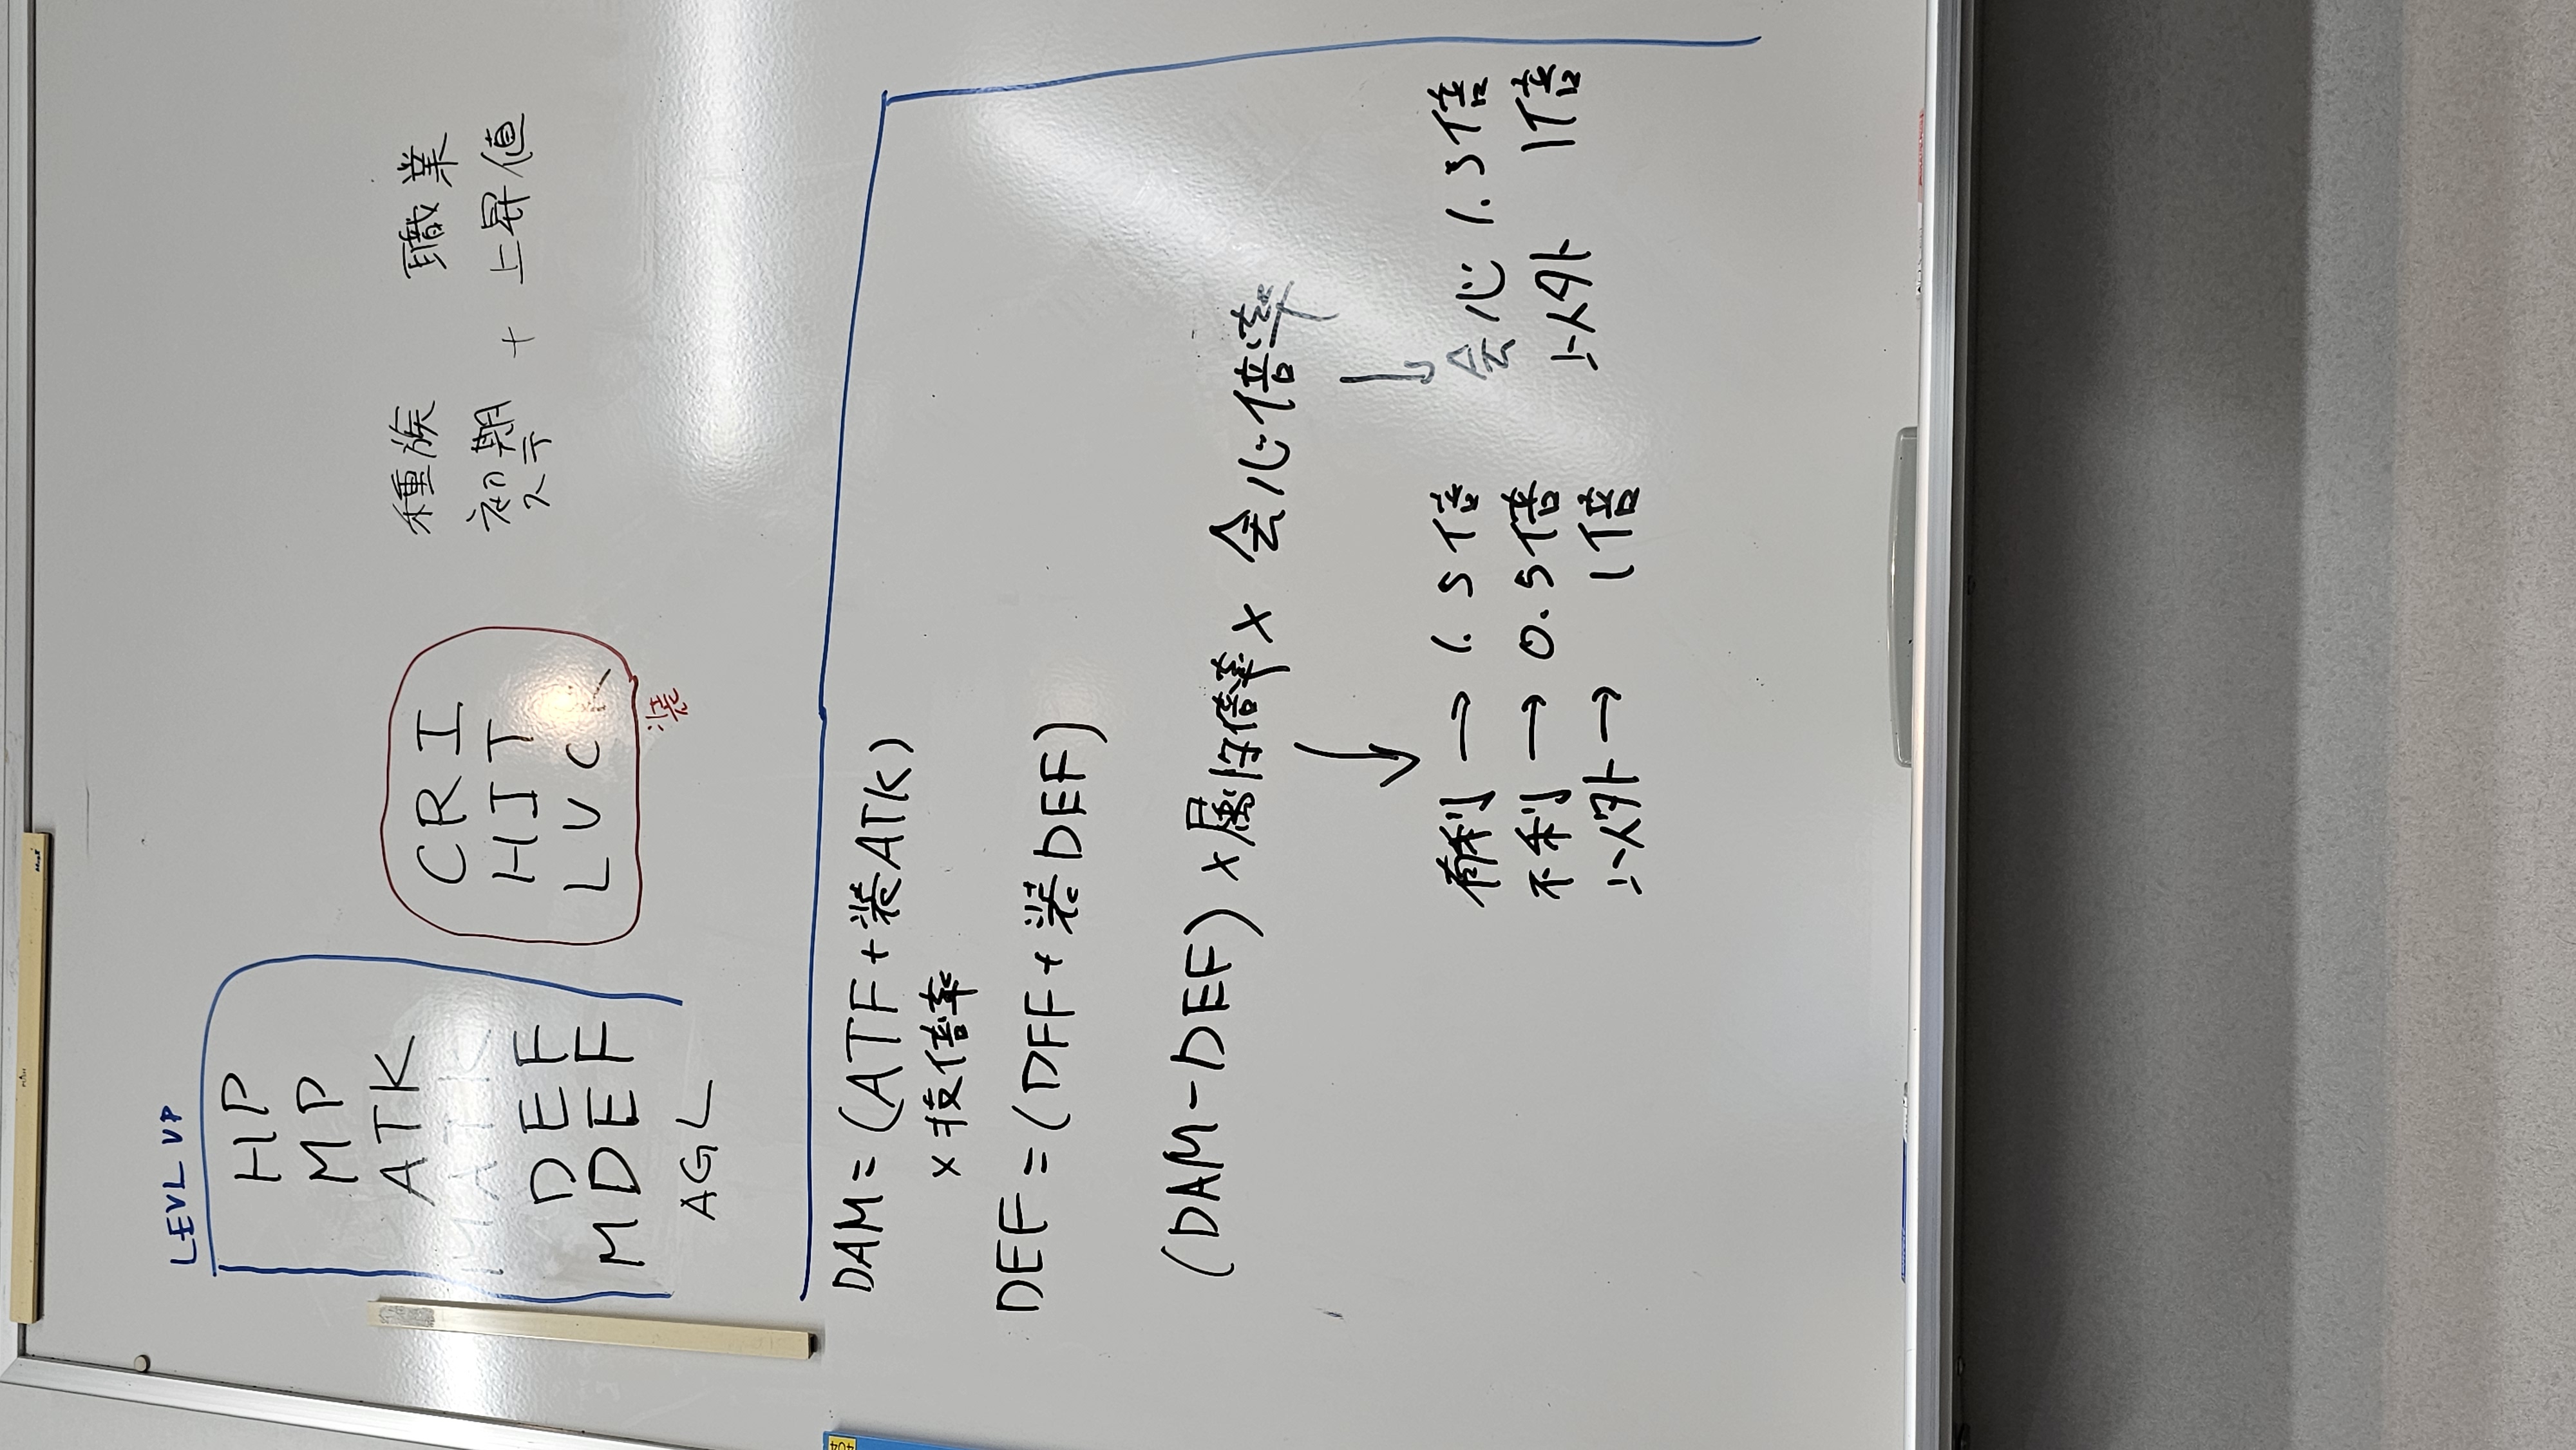 LEVL UP
HP
MP
ATK
MATK
DEF
MDEF
AGL
CRI
HIT
LUCK
装
種族 職業
初期 + 上昇値
ステ
DAM=(ATF+装ATK)
×技倍率
DEF=(DFF+装DEF)
(DAM-DEF)×属性倍率×会心倍率
↓ ↓
有利→1.5倍 会心 1.5倍
不利→0.5倍 以外 1倍
以外→ 1倍